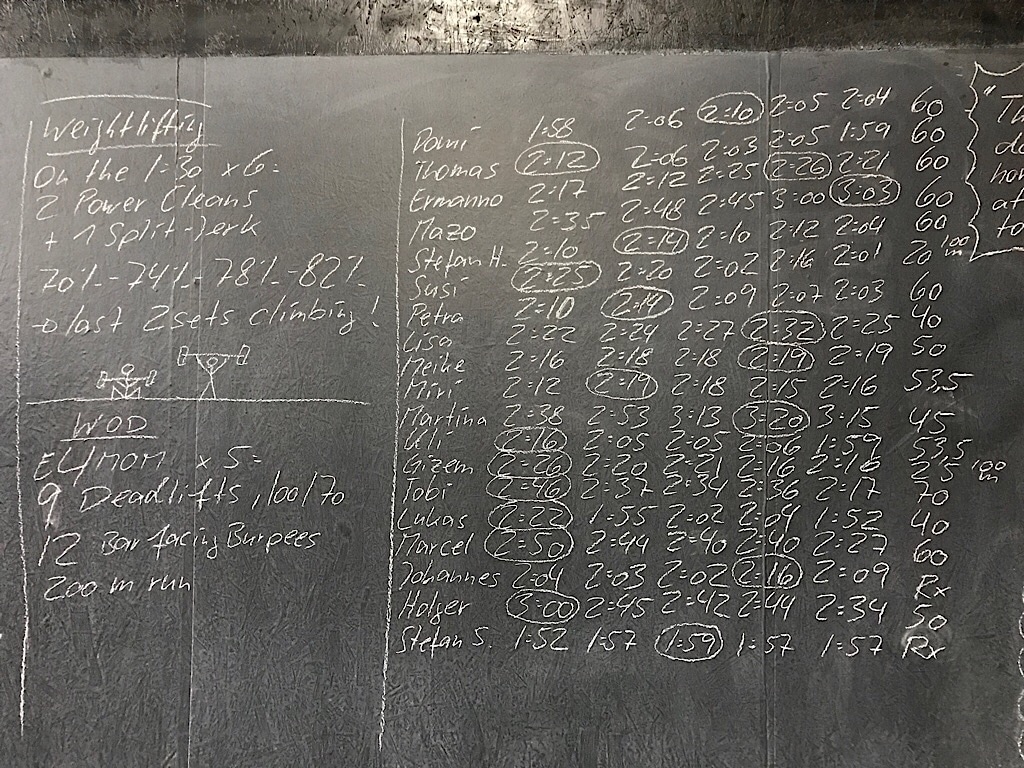 Weightlifting
On the 1:30 x 6:
2 Power Cleans
+ 1 Split-Jerk
70%-74%-78%-82%
→ last 2 sets climbing!
WOD
E4MOM x 5:
9 Deadlifts, 100/70
12 Bar facing Burpees
200 m run
Domi 1:58 2:06 2:10 2:05 2:04 60
Thomas 2:12 2:06 2:03 2:05 1:59 60
Ermanno 2:17 2:12 2:25 2:26 2:21 60
Mazo 2:35 2:48 2:45 3:00 3:03 60
Stefan H. 2:10 2:14 2:10 2:12 2:04 60
Susi 2:25 2:20 2:02 2:16 2:01 20 100 m
Petra 2:10 2:14 2:09 2:07 2:03 60
Lisa 2:22 2:24 2:27 2:32 2:25 40
Meike 2:16 2:18 2:18 2:19 2:19 50
Miri 2:12 2:19 2:18 2:15 2:16 53,5
Martina 2:38 2:53 3:13 3:20 3:15 45
Uli 2:16 2:05 2:05 2:06 1:59 53,5
Gizem 2:26 2:20 2:21 2:16 2:16 25 100 m
Tobi 2:46 2:37 2:34 2:36 2:17 70
Lukas 2:22 1:55 2:02 2:04 1:52 40
Marcel 2:50 2:44 2:40 2:40 2:27 60
Johannes 2:04 2:03 2:02 2:16 2:09 Rx
Holger 3:00 2:45 2:42 2:44 2:34 50
Stefan S. 1:52 1:57 1:59 1:57 1:57 Rx